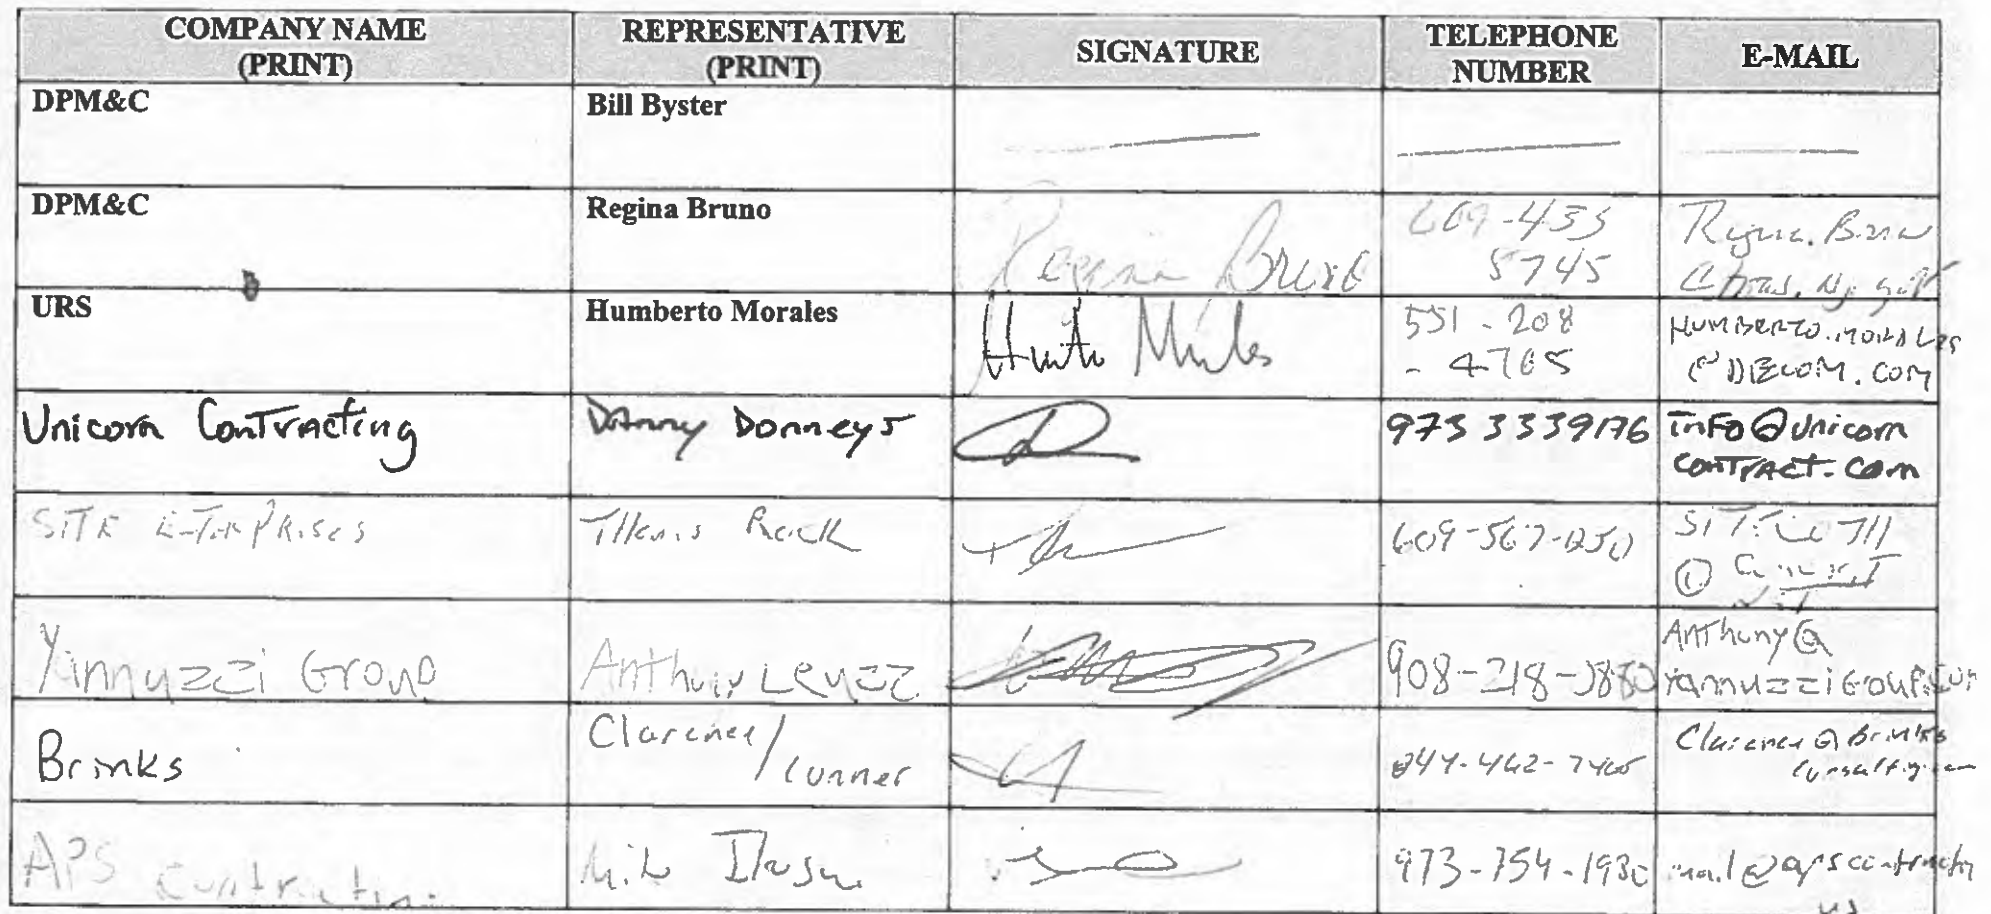 COMPANY NAME (PRINT) REPRESENTATIVE (PRINT) SIGNATURE TELEPHONE NUMBER E-MAIL
DPM&C Bill Byster
DPM&C Regina Bruno Regina Bruno 609-433
5745
URS Humberto Morales 551-208
-4765
HUMBERTO.MORALES
@AECOM.COM
Unicorn Contracting Danny Donneys 973 3339176 info@unicorn
contract.com
SITE Rock 609-567-
Yannuzzi Group Anthony 908-218-0880 Anthony@
YannuzziGroup.com
Brinks Clarence/
Conner 844-462-7465 Clarence@Brinks
APS Contracting 973-754-1930 mail@apscontracting
us